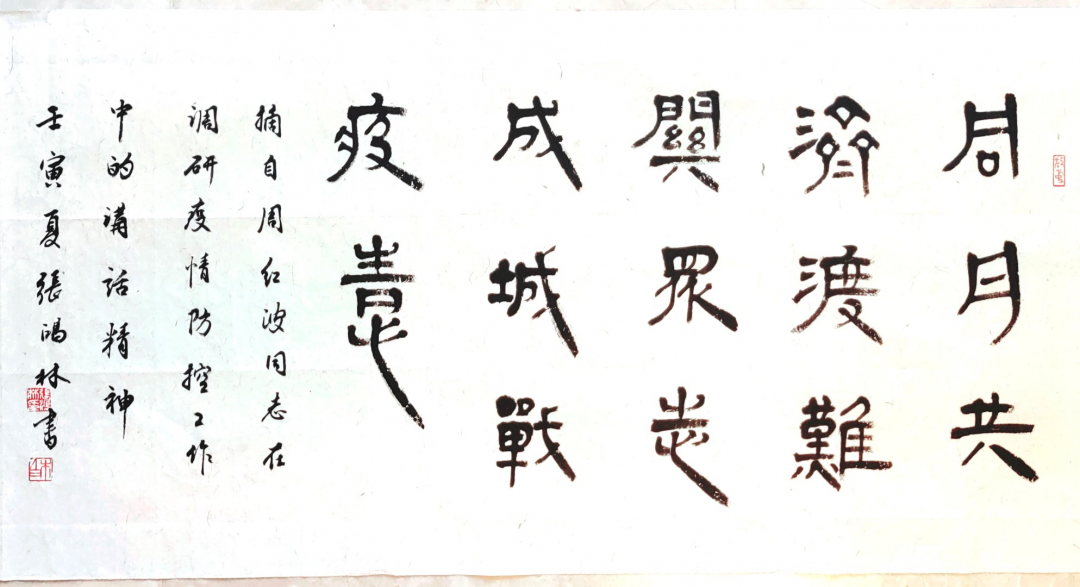 同舟共
濟渡難
關眾志
成城戰
疫情
摘自周红波同志在
调研疫情防控工作
中的講話精神
壬寅夏張鸿林書